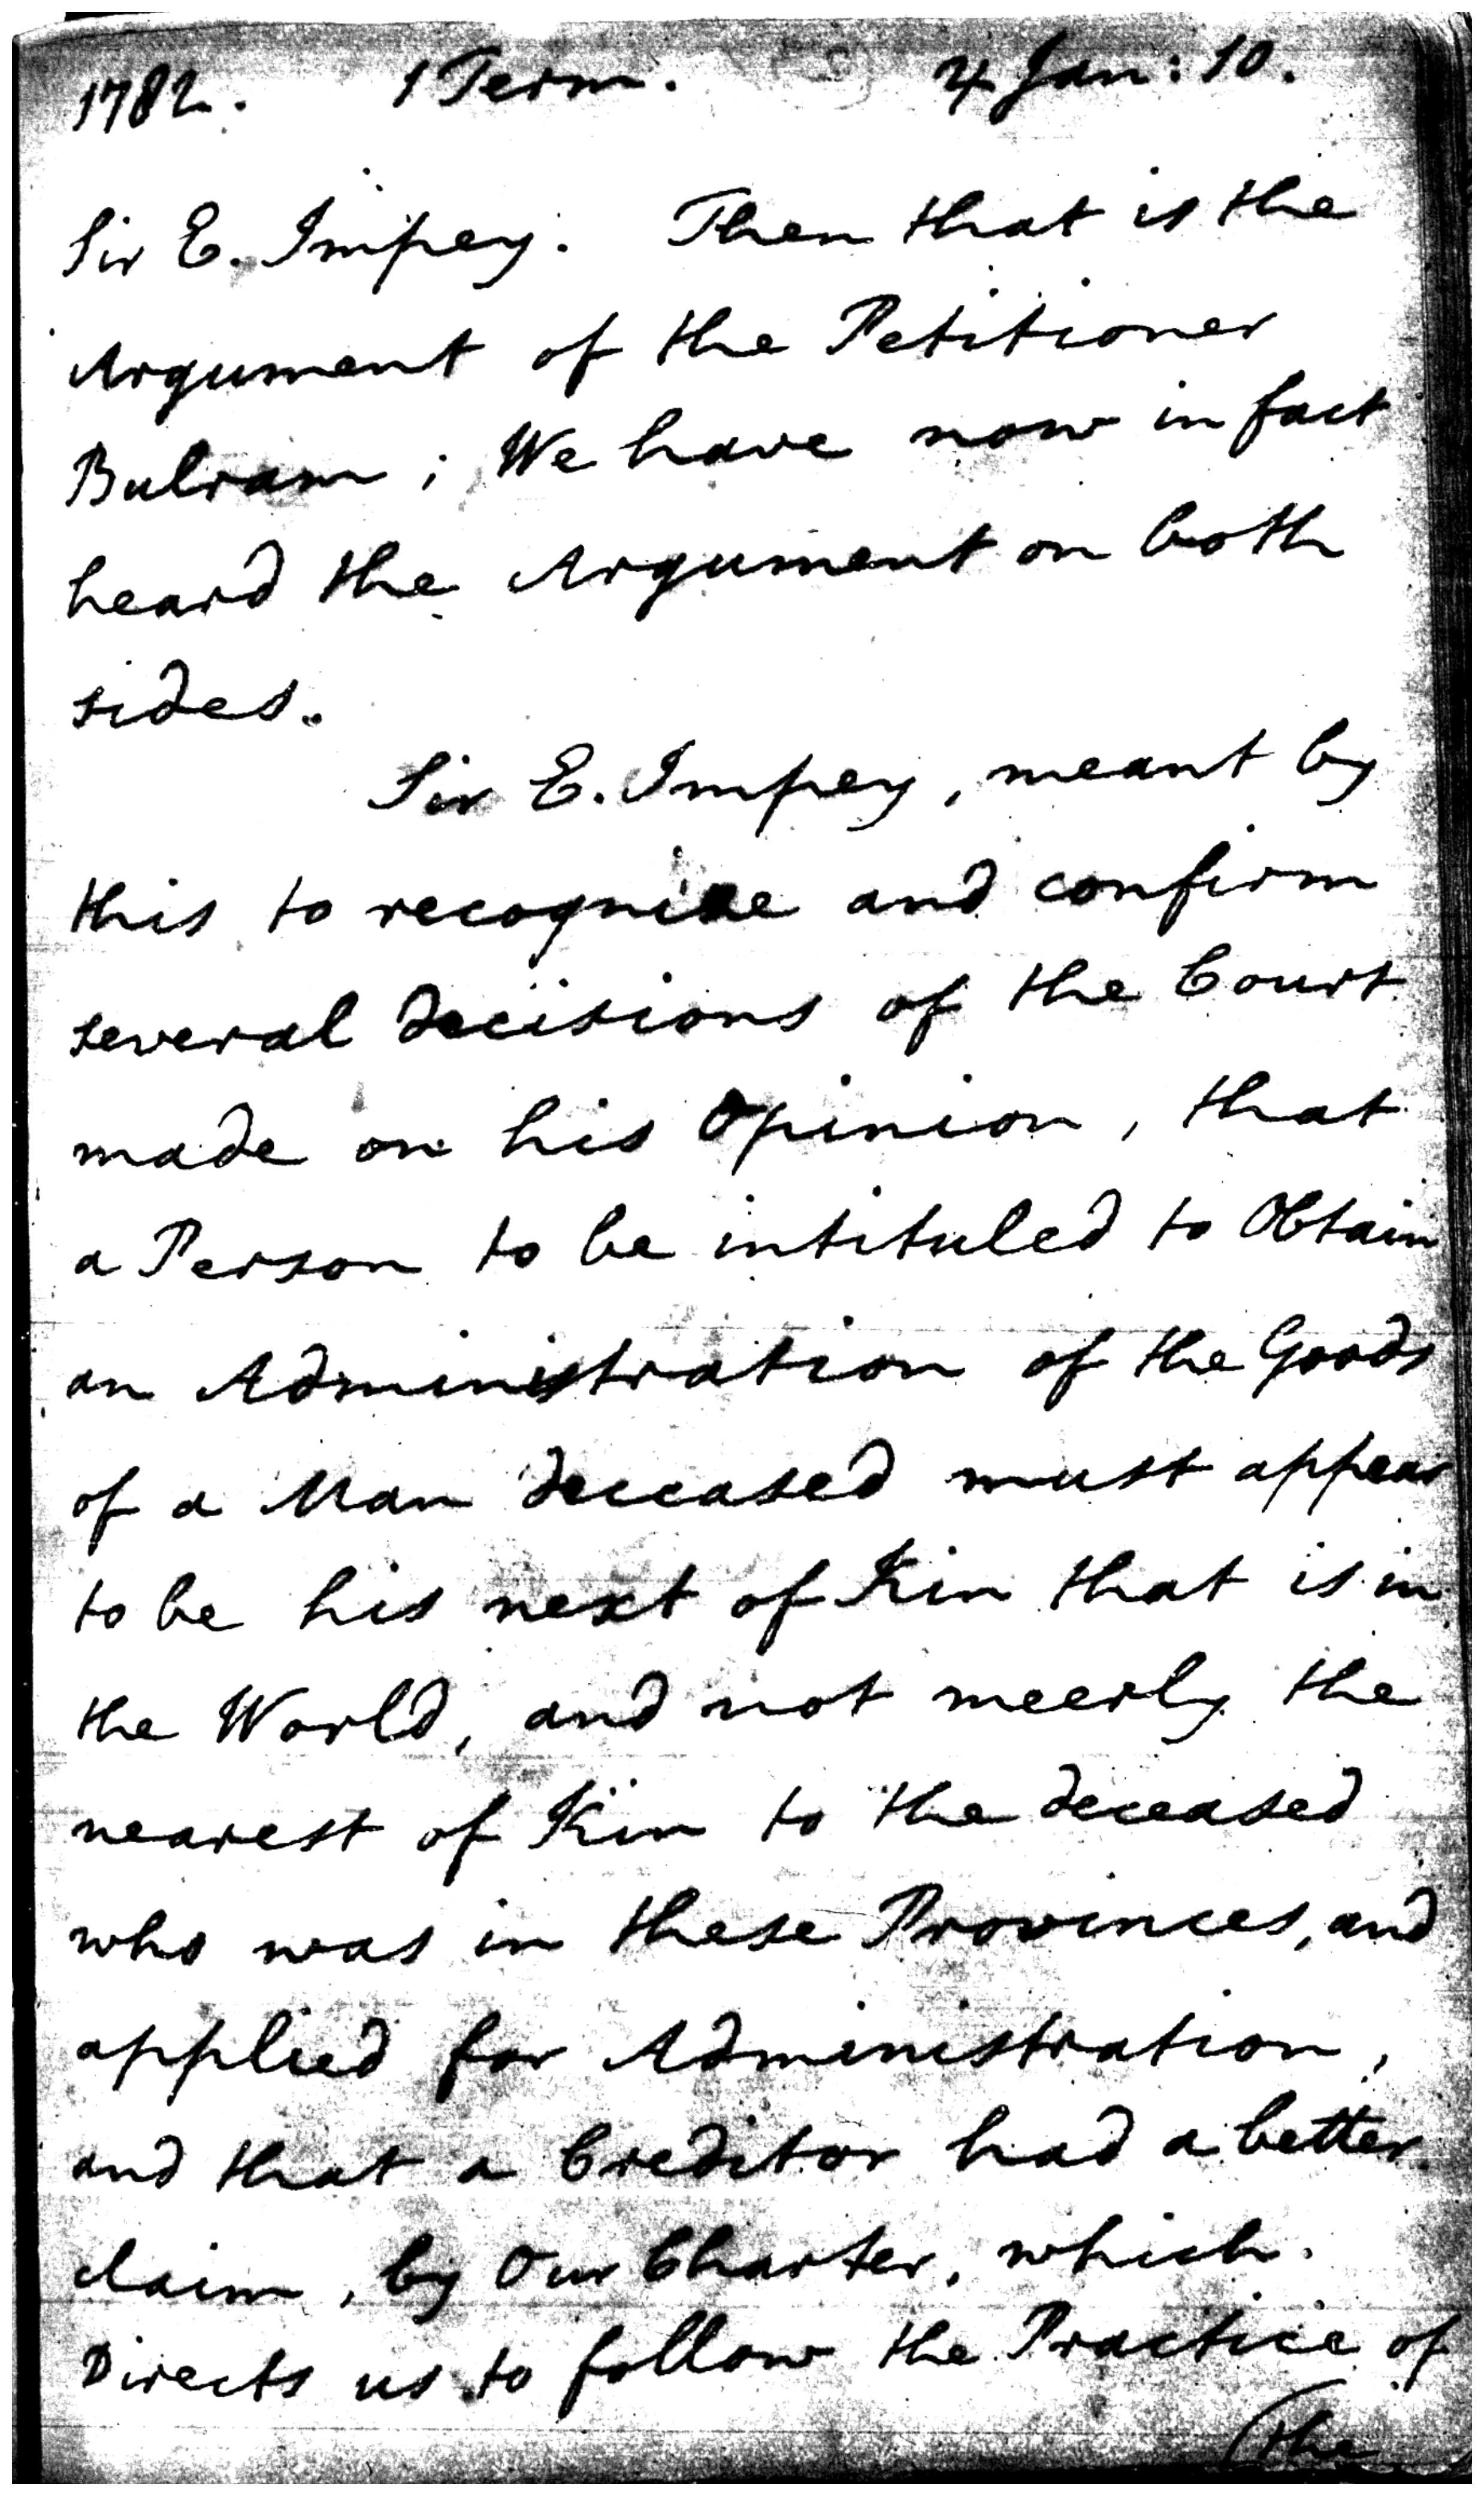 1782. 1 Term. 4 Jan: 10.
Sir E. Impey. Then that is the
Argument of the Petitioner
Bulram; We have now in fact
heard the Argument on both
sides.
Sir E. Impey, meant by
this to recognize and confirm
several decisions of the Court
made on his Opinion, that
a Person to be intituled to Obtain
an Administration of the Goods
of a Man deceased must appear
to be his next of Kin that is in
the World, and not meerly the
nearest of Kin to the deceased
who was in these Provinces, and
applied for Administration,
and that a Creditor had a better
claim, by Our Charter, which
Directs us to follow the Practice of
(the